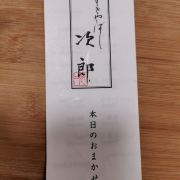 きやばし
次郎
本日のおまかせ